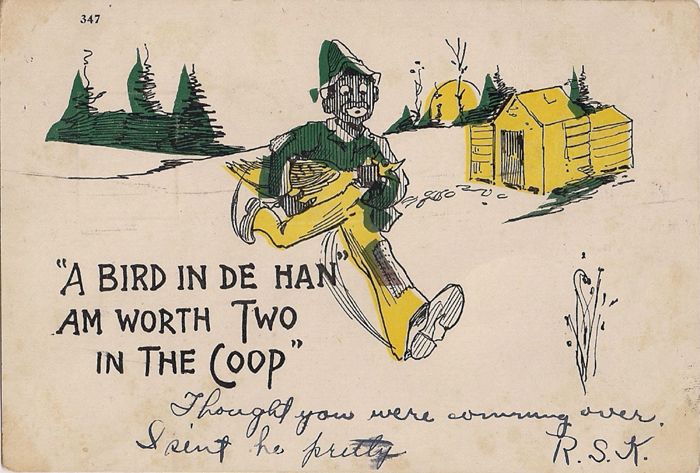 347
"A BIRD IN DE HAN"
AM WORTH TWO
IN THE COOP"
Thought you were comming over.
I sent he pretty
R.S.K.